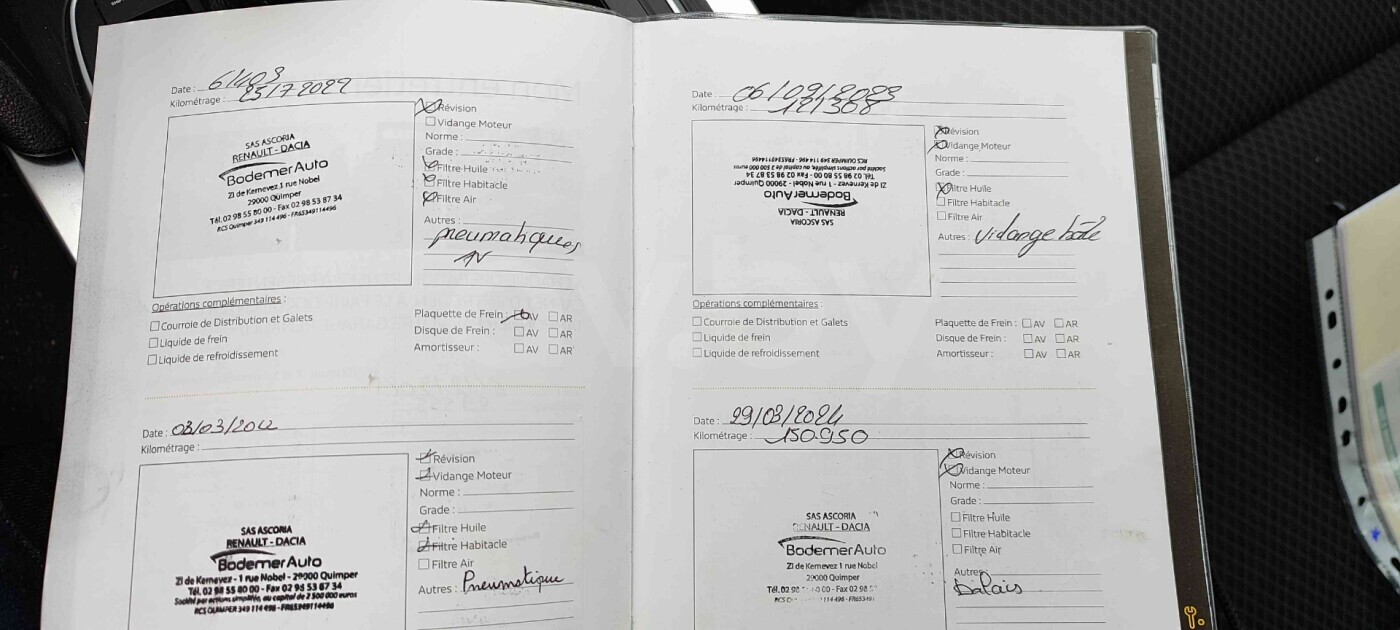 Date : 61409
Kilométrage : 25/7 2022
Révision
Vidange Moteur
Norme :
Grade :
Filtre Huile
Filtre Habitacle
Filtre Air
Autres :
pneumatiques
AV
SAS ASCORIA
RENAULT - DACIA
BodemerAuto
ZI de Kernevez 1 rue Nobel
29000 Quimper
Tél. 02 98 55 80 00 - Fax 02 98 53 87 34
RCS Quimper 349 114 496 - FR65349114496
Opérations complémentaires :
Courroie de Distribution et Galets
Liquide de frein
Liquide de refroidissement
Plaquette de Frein : AV AR
Disque de Frein : AV AR
Amortisseur : AV AR
Date : 03/03/202
Kilométrage :
Révision
Vidange Moteur
Norme :
Grade :
Filtre Huile
Filtre Habitacle
Filtre Air
Autres : Pneumatique
SAS ASCORIA
RENAULT - DACIA
BodemerAuto
ZI de Kernevez - 1 rue Nobel - 29000 Quimper
Tél. 02 98 55 80 00 - Fax 02 98 53 87 34
Société par actions simplifiée, au capital de 2 500 000 euros
RCS QUIMPER 349 114 496 - FR65349114496
Date : 06/09/2023
Kilométrage : 121308
Révision
Vidange Moteur
Norme :
Grade :
Filtre Huile
Filtre Habitacle
Filtre Air
Autres : Vidange boîte
SAS ASCORIA
RENAULT - DACIA
BodemerAuto
ZI de Kernevez - 1 rue Nobel - 29000 Quimper
Tél. 02 98 55 80 00 - Fax 02 98 53 87 34
Société par actions simplifiée, au capital de 2 500 000 euros
RCS QUIMPER 349 114 496 - FR65349114496
Opérations complémentaires :
Courroie de Distribution et Galets
Liquide de frein
Liquide de refroidissement
Plaquette de Frein : AV AR
Disque de Frein : AV AR
Amortisseur : AV AR
Date : 29/03/2024
Kilométrage : 150.950
Révision
Vidange Moteur
Norme :
Grade :
Filtre Huile
Filtre Habitacle
Filtre Air
Autres :
Balais
SAS ASCORIA
RENAULT - DACIA
BodemerAuto
ZI de Kernevez 1 rue Nobel
29000 Quimper
Tél. 02 98 - Fax 02 98
114 496 - FR65349